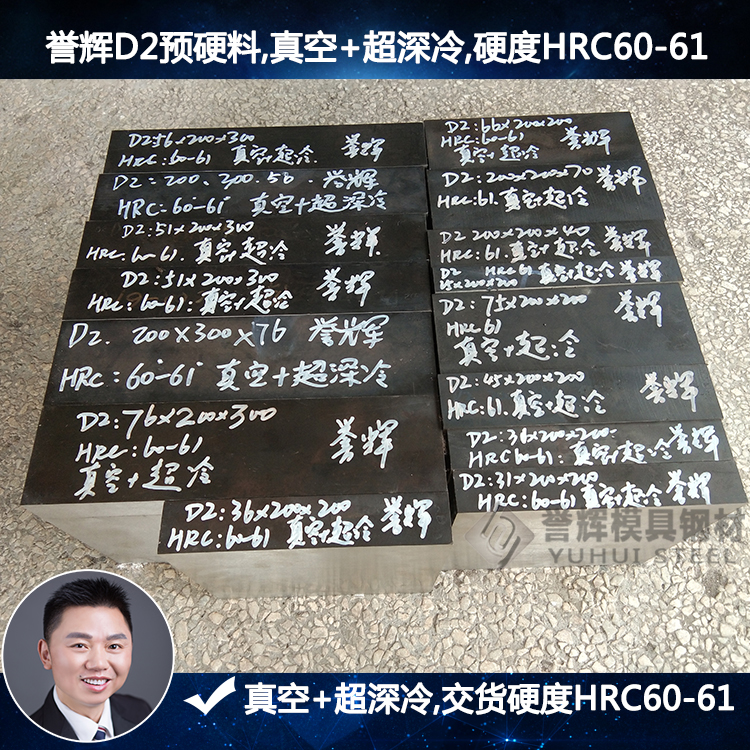 誉辉D2预硬料,真空+超深冷,硬度HRC60-61
D256x200x300
HRC:60-61 真空+超冷. 誉辉
D2:200.300.56. 誉辉
HRC:60-61 真空+超深冷
D2:51x200x300
HRC:60-61. 真空+超冷 誉辉
D2:51x200x300
HRC:60-61:真空+超冷 誉辉
D2. 200X300x76 誉辉
HRC:60-61 真空+超深冷
D2:76x200x300
HRC:60-61
真空+超冷 誉辉
D2:36x200x200
HRC:60-61 真空+超冷 誉辉
D2:66x200x200
HRC:60-61
真空+超冷 誉辉
D2:200x200x70
HRC:61.真空+超冷 誉辉
D2 200x200x40
HRC:61.真空+超冷 誉辉
D2 HRC61 真空+超冷 誉辉
x200x200
D2:75x200x200
HRC61
真空+超冷 誉辉
D2:45x200x200
HRC:61.真空+超冷 誉辉
D2:36x200x200.
HRC60-61:真空+超冷 誉辉
D2:31x200x200
HRC:60-61真空+超冷 誉辉
誉辉模具钢材
YUHUI STEEL
真空+超深冷,交货硬度HRC60-61